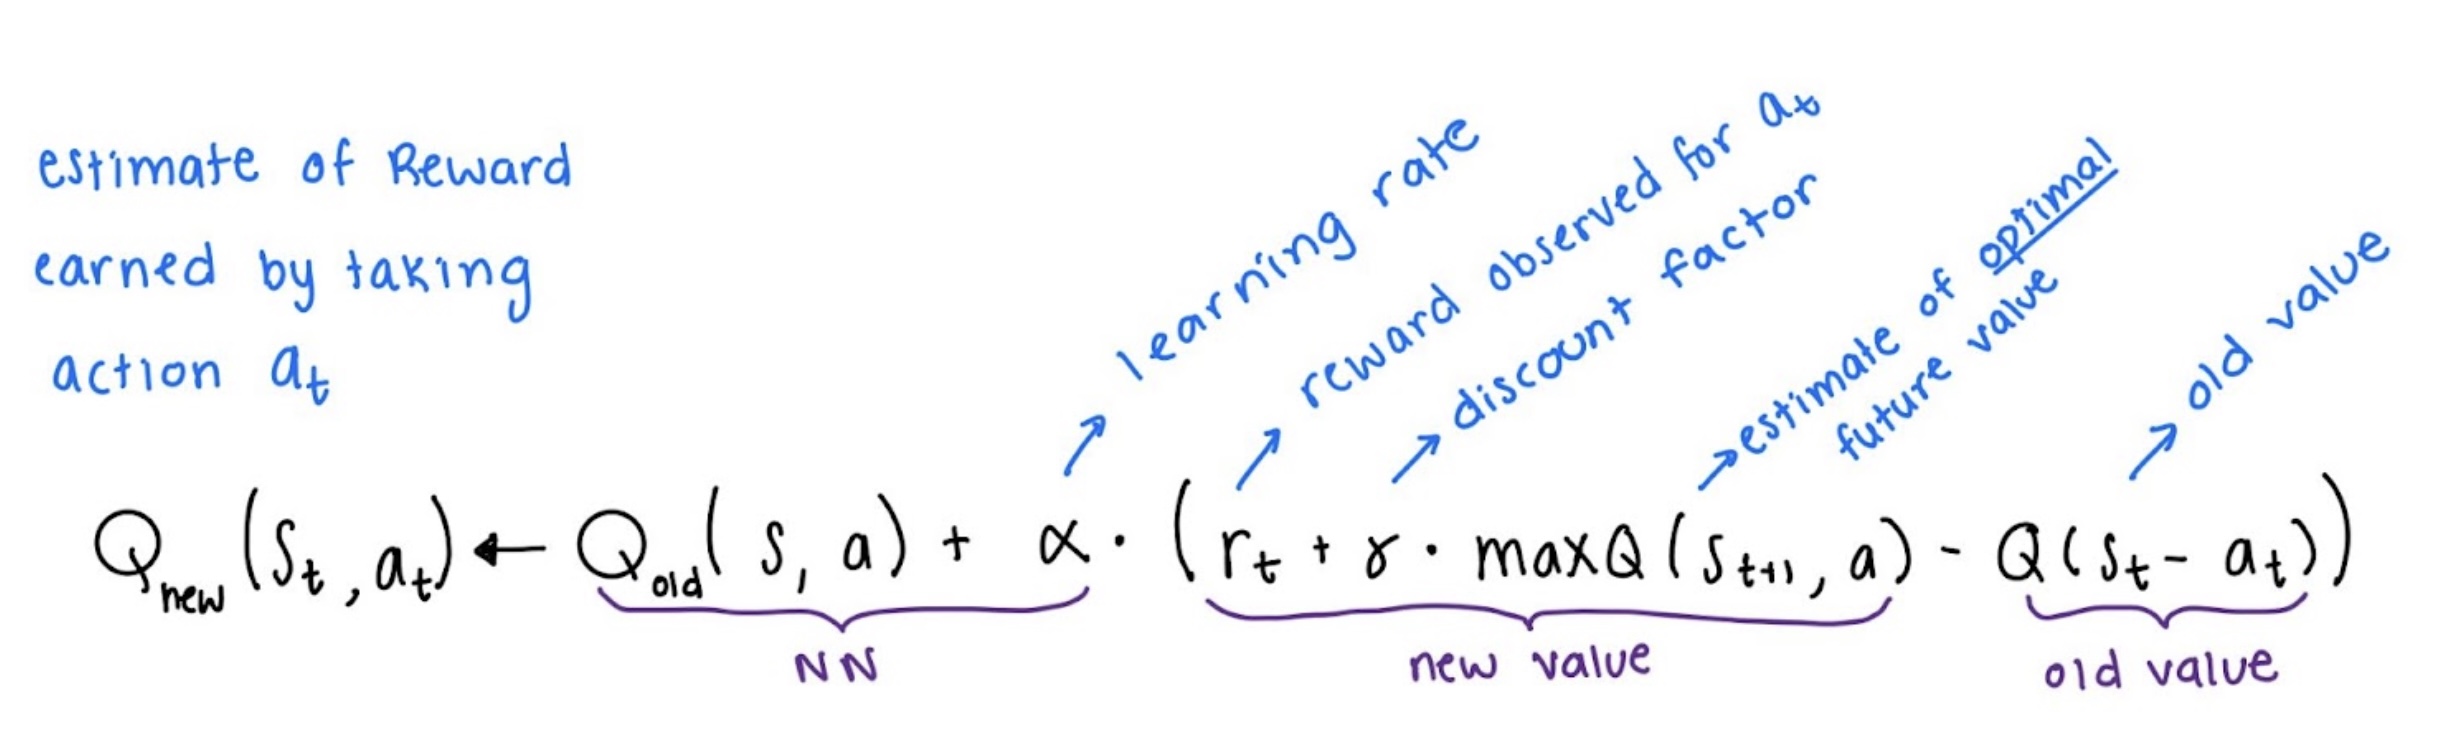 estimate of Reward
earned by taking
action aₜ
learning rate
reward observed for aₜ
discount factor
estimate of optimal
future value
old value
Q_new (sₜ, aₜ) ← Q_old (s, a) + α · (rₜ + γ · maxQ (sₜ₊₁, a) - Q (sₜ - aₜ))
NN
new value
old value